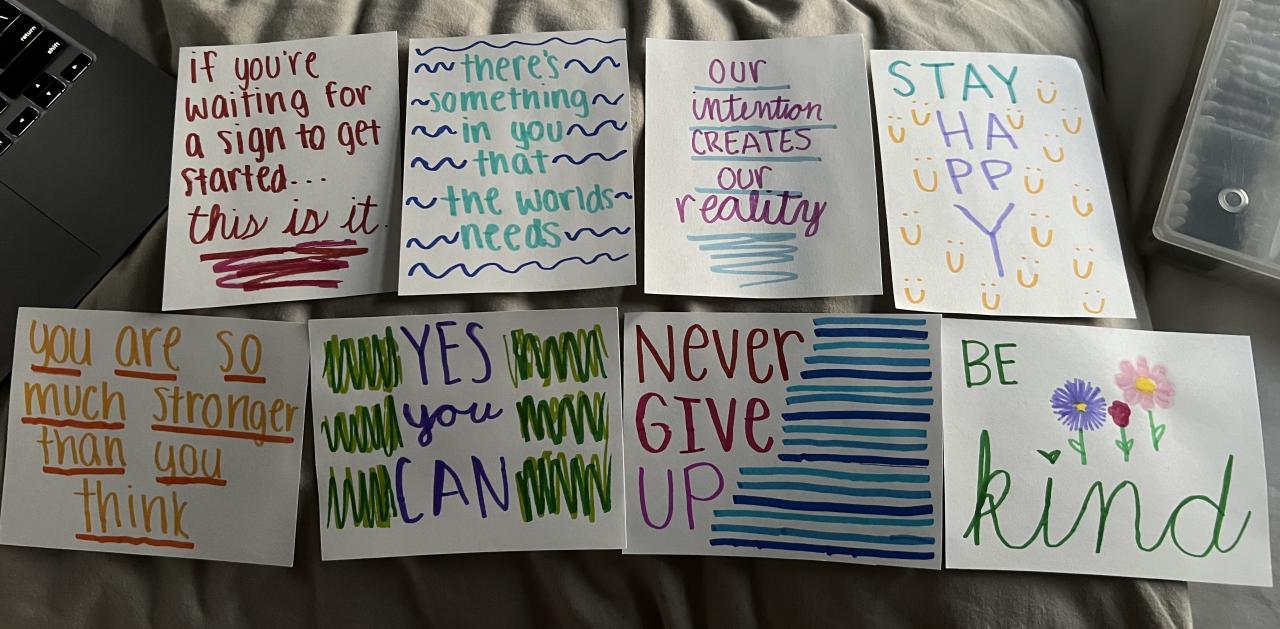 return
shift
if you're
waiting for
a sign to get
started...
this is it.
there's
something
in you
that
the worlds
needs
our
intention
CREATES
our
reality
STAY
HA
PP
Y
you are so
much stronger
than you
think
YES
you
CAN
Never
GIVE
UP
BE
kind